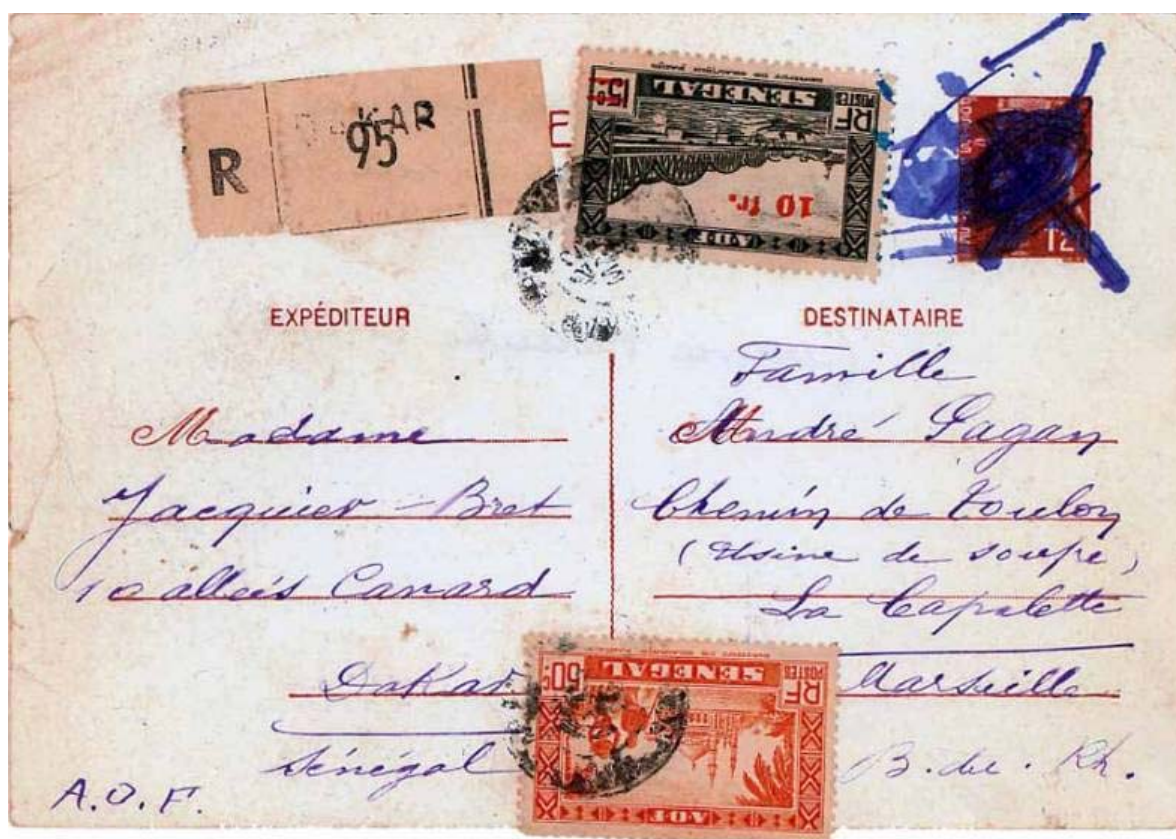 R
DAKAR
95
E
RF
POSTES
SENEGAL
15c
10 fr.
AOF
12
EXPÉDITEUR
Madame
Jacquier-Bret
10 allées Canard
Dakar
Sénégal
A.O.F.
DESTINATAIRE
Famille
André Pagan
Chemin de Toulon
(Usine de soupe)
La Capelette
Marseille
B. du. Rh.
RF
POSTES
SENEGAL
50c
AOF